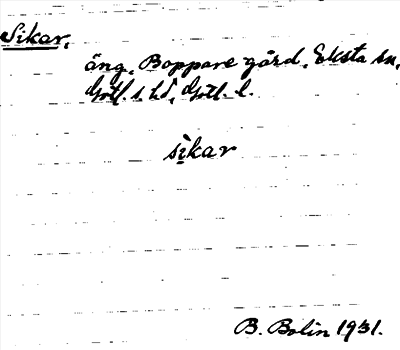 Sikar,
äng, Boppare gård, Eksta sn,
Gotl. s. hd, Gotl. l.
sìkar
B. Bolin 1931.